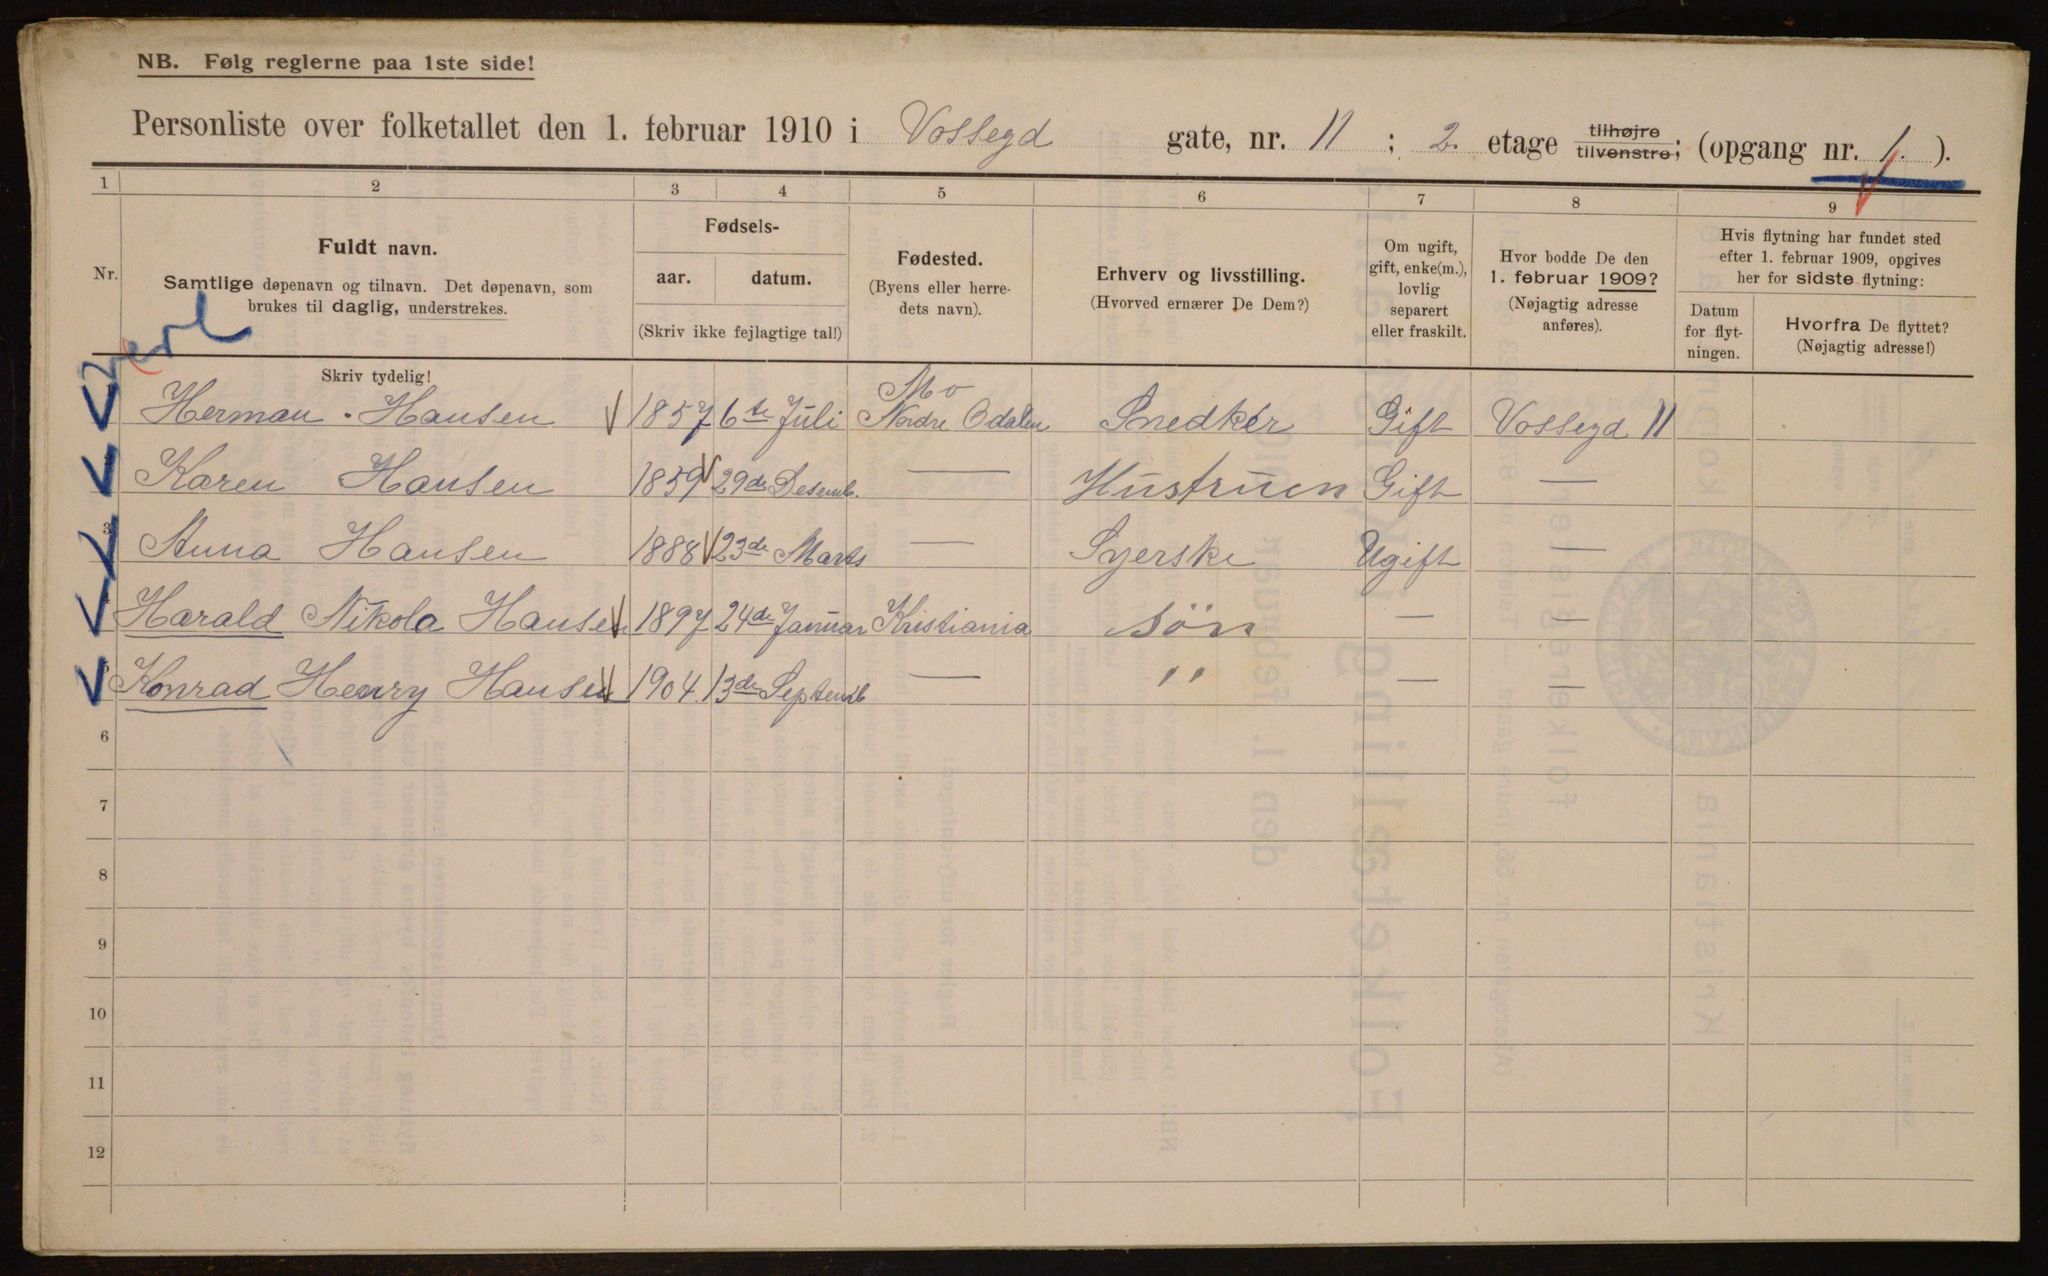 NB. Følg reglerne paa 1ste side!
Personliste over folketallet den 1. februar 1910 i Vossegd gate, nr. 11 ; 2. etage tilhøjre tilvenstre; (opgang nr. 1. ).
1 2 3 4 5 6 7 8 9
Nr.
Fuldt navn.
Samtlige døpenavn og tilnavn. Det døpenavn, som
brukes til daglig, understrekes.
Skriv tydelig!
Fødsels-
aar. datum.
(Skriv ikke fejlagtige tal!)
Fødested.
(Byens eller herre-
dets navn).
Erhverv og livsstilling.
(Hvorved ernærer De Dem?)
Om ugift,
gift, enke(m.),
lovlig
separert
eller fraskilt.
Hvor bodde De den
1. februar 1909?
(Nøjagtig adresse
anføres).
Hvis flytning har fundet sted
efter 1. februar 1909, opgives
her for sidste flytning:
Datum
for flyt-
ningen.
Hvorfra De flyttet?
(Nøjagtig adresse!)
Mo
Herman Hansen 1857 6te Juli Nordre Odalen Snedker Gift Vossegd 11
Karen Hansen 1859 29de Desemb. — Hustruen Gift —
3 Anna Hansen 1888 23de Marts — Syerske Ugift —
Harald Nikola Hansen 1897 24de Januar Kristiania Søn — —
5 Konrad Henry Hansen 1904 13de Septemb — " — —
6
7
8
9
10
11
12